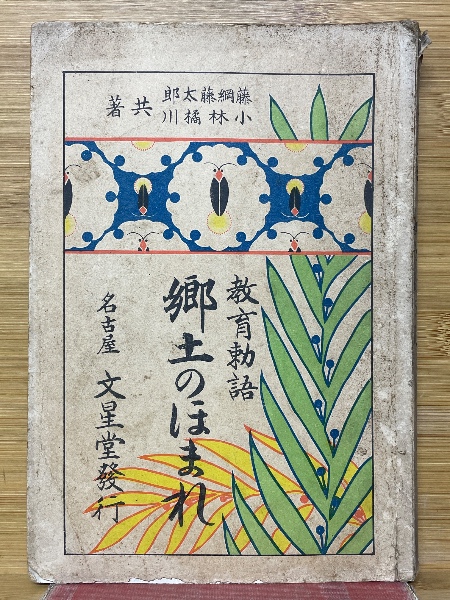 藤綱藤太郎
小林橘川
共著
教育勅語
郷土のほまれ
名古屋 文星堂發行